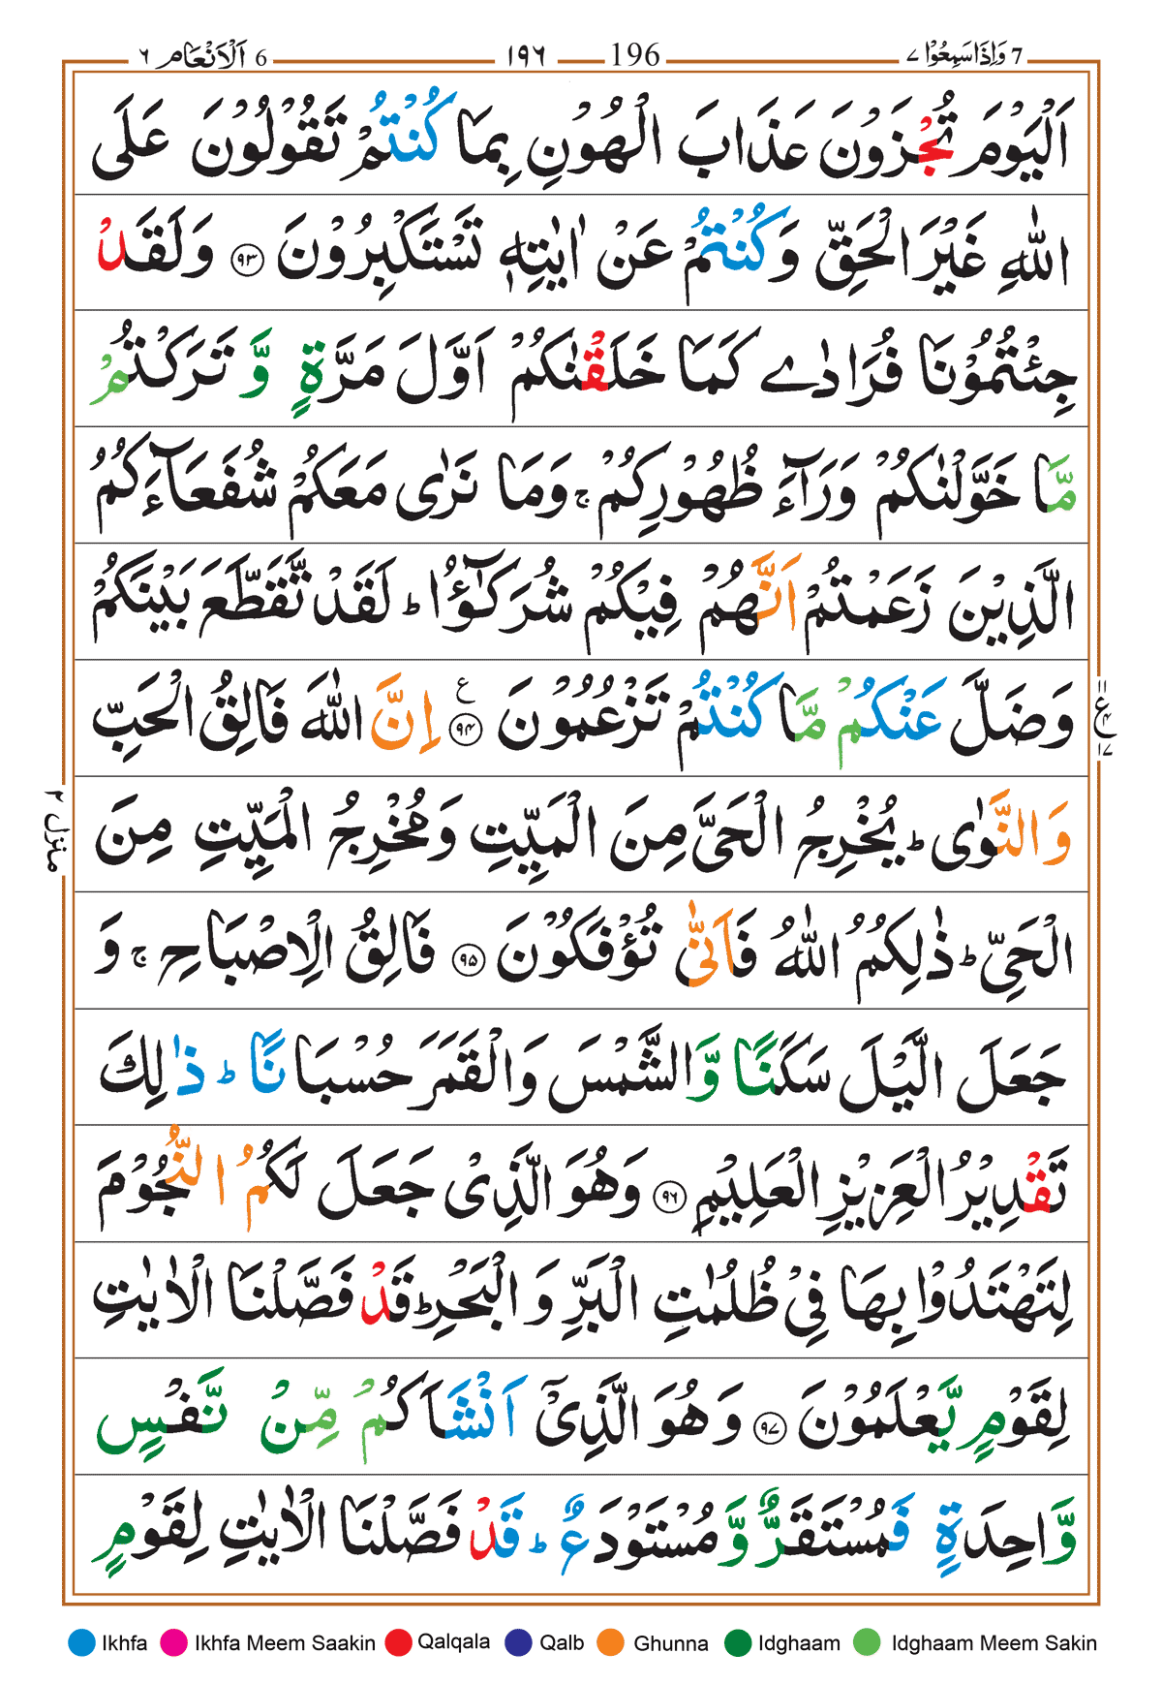 6 اَلْاَنْعَام ٦ ١٩٦ 196 7 وَاِذَاسَمِعُوْا ٧
اَلْيَوْمَ تُجْزَوْنَ عَذَابَ الْهُوْنِ بِمَا كُنْتُمْ تَقُوْلُوْنَ عَلَى
اللّٰهِ غَيْرَ الْحَقِّ وَكُنْتُمْ عَنْ اٰيٰتِهٖ تَسْتَكْبِرُوْنَ ۝٩٣ وَلَقَدْ
جِئْتُمُوْنَا فُرَادٰى كَمَا خَلَقْنٰكُمْ اَوَّلَ مَرَّةٍ وَّ تَرَكْتُمْ
مَّا خَوَّلْنٰكُمْ وَرَآءَ ظُهُوْرِكُمْ ۚ وَمَا نَرٰى مَعَكُمْ شُفَعَآءَكُمُ
الَّذِيْنَ زَعَمْتُمْ اَنَّهُمْ فِيْكُمْ شُرَكٰٓؤُا ؕ لَقَدْ تَّقَطَّعَ بَيْنَكُمْ
وَضَلَّ عَنْكُمْ مَّا كُنْتُمْ تَزْعُمُوْنَ ۝٩٤ ع اِنَّ اللّٰهَ فَالِقُ الْحَبِّ
وَالنَّوٰى ؕ يُخْرِجُ الْحَىَّ مِنَ الْمَيِّتِ وَمُخْرِجُ الْمَيِّتِ مِنَ
الْحَىِّ ؕ ذٰلِكُمُ اللّٰهُ فَاَنّٰى تُؤْفَكُوْنَ ۝٩٥ فَالِقُ الْاِصْبَاحِ ۚ وَ
جَعَلَ الَّيْلَ سَكَنًا وَّالشَّمْسَ وَالْقَمَرَ حُسْبَانًا ؕ ذٰلِكَ
تَقْدِيْرُ الْعَزِيْزِ الْعَلِيْمِ ۝٩٦ وَهُوَ الَّذِىْ جَعَلَ لَكُمُ النُّجُوْمَ
لِتَهْتَدُوْا بِهَا فِىْ ظُلُمٰتِ الْبَرِّ وَ الْبَحْرِ ؕ قَدْ فَصَّلْنَا الْاٰيٰتِ
لِقَوْمٍ يَّعْلَمُوْنَ ۝٩٧ وَهُوَ الَّذِىْٓ اَنْشَاَكُمْ مِّنْ نَّفْسٍ
وَّاحِدَةٍ فَمُسْتَقَرٌّ وَّمُسْتَوْدَعٌ ؕ قَدْ فَصَّلْنَا الْاٰيٰتِ لِقَوْمٍ
منزل ٢
Ikhfa Ikhfa Meem Saakin Qalqala Qalb Ghunna Idghaam Idghaam Meem Sakin